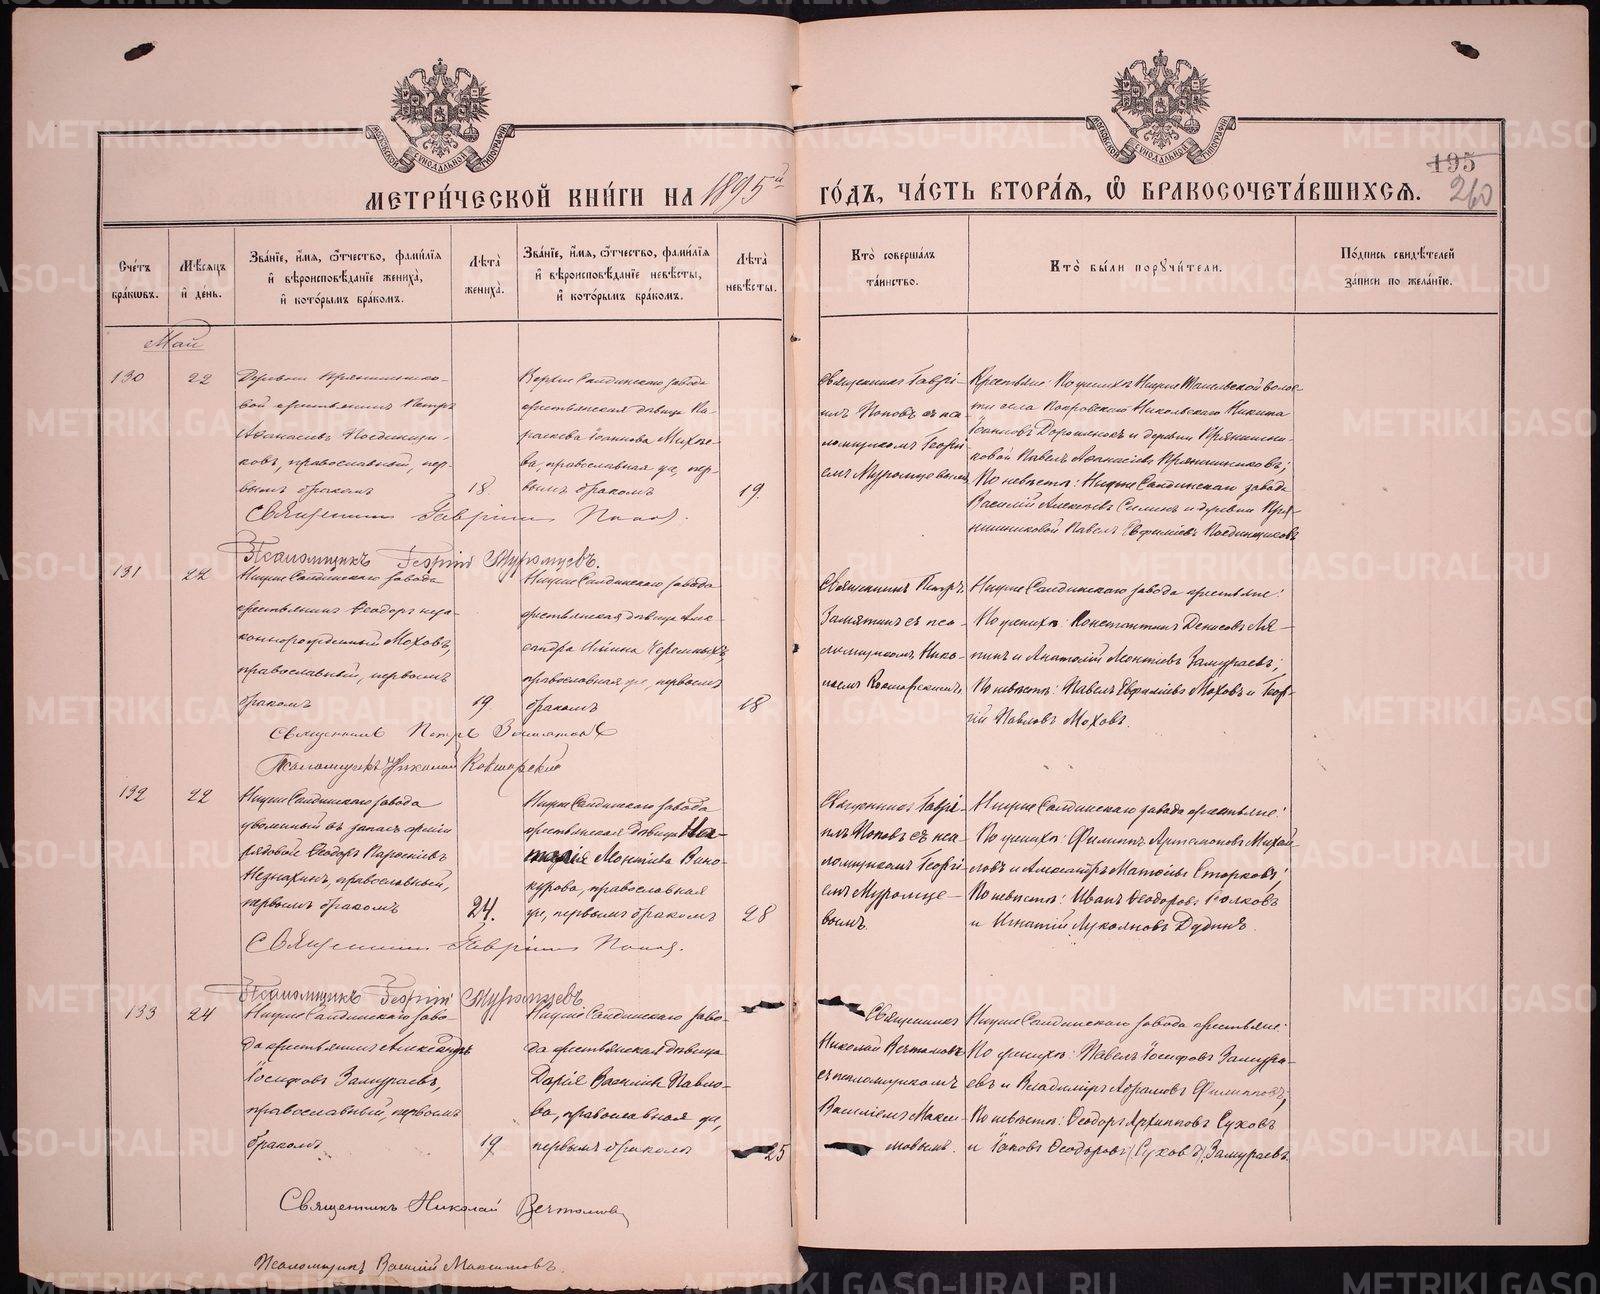 МЕТРИ́ЧЕСКОЙ КНИ́ГИ НА 1895й ГО́ДЪ, ЧА́СТЬ ВТОРА́Я, Ѡ БРАКОСОЧЕТА́ВШИХСЯ.
195
260
Сче́тъ бра́кѡвъ.
Мѣ́сяцъ и҆ де́нь.
Зва́нїе, и҆́мя, ѻ҆́тчество, фами́лїя
и҆ вѣроисповѣ́данїе жениха̀,
и҆ кото́рымъ бра́комъ.
Лѣ́та жениха̀.
Зва́нїе, и҆́мя, ѻ҆́тчество, фами́лїя
и҆ вѣроисповѣ́данїе невѣ́сты,
и҆ кото́рымъ бра́комъ.
Лѣ́та невѣ́сты.
Кто̀ соверша́лъ
та́инство.
Кто̀ бы́ли порꙋчи́тели.
По́дпись свидѣ́телей
за́писи по жела́нїю.
Май
130
22
Деревни Прянишнико-
вой крестьянинъ Петръ
Аѳанасіевъ Поединщи-
ковъ, православный, пер-
вымъ бракомъ
18
Верхне Салдинскаго завода
крестьянская дѣвица Па-
раскева Іоаннова Михѣе-
ва, православная же, пер-
вымъ бракомъ
19.
Священникъ Гаврі-
илъ Поповъ съ пса-
ломщикомъ Георгі-
емъ Муромцевымъ
Крестьяне: По женихѣ Нижне
села Покровскаго Никольскаго Никита
и деревни Прянишни-
ковой Павелъ Аѳанасіевъ Прянишниковъ;
По невѣстѣ: Нижне Салдинскаго завода
Василій Алексѣевъ и деревни Пря-
нишниковой Павелъ Евфиміевъ Поединщиковъ
Священникъ Гавріилъ Поповъ.
Псаломщикъ Георгій Муромцевъ.
131
22
Нижне Салдинскаго завода
крестьянинъ Ѳеодоръ неза-
коннорожденный Моховъ,
православный, первымъ
бракомъ
19
Нижне Салдинскаго завода
крестьянская дѣвица Алек-
сандра Ильина Черемныхъ,
православная же, первымъ
бракомъ
18
Священникъ Петръ
Замятинъ съ пса-
ломщикомъ Нико-
лаемъ
Нижне Салдинскаго завода крестьяне:
По женихѣ: Константинъ Денисовъ Ля-
пинъ и Анатолій Леонтіевъ Замураевъ;
По невѣстѣ: Павелъ Евфиміевъ Моховъ и Геор-
гій Павловъ Моховъ.
Священникъ Петръ Замятинъ
Псаломщикъ Николай
132
22
Нижне Салдинскаго завода
уволенный въ запасъ арміи
рядовой Ѳеодоръ
православный,
первымъ бракомъ
24.
Нижне Салдинскаго завода
крестьянская дѣвица На-
талія Леонтіева Вино-
курова, православная
же, первымъ бракомъ
28
Священникъ Гаврі-
илъ Поповъ съ пса-
ломщикомъ Георгі-
емъ Муромце-
вымъ.
Нижне Салдинскаго завода крестьяне:
По женихѣ: Филиппъ Артамоновъ Михай-
ловъ и Александръ Матѳіевъ Сторковъ;
По невѣстѣ: Иванъ Ѳеодоровъ Волковъ
и Игнатій Лукояновъ Дудинъ.
Священникъ Гавріилъ Поповъ.
Псаломщикъ Георгій Муромцевъ.
133
24
Нижне Салдинскаго заво-
да крестьянинъ Александръ
Іосифовъ Замураевъ,
православный, первымъ
бракомъ
19
Нижне Салдинскаго заво-
да крестьянская дѣвица
Дарія Василіева Павло-
ва, православная же,
первымъ бракомъ
25
Священникъ
Николай Вечтомовъ
съ псаломщикомъ
Василіемъ Макси-
мовымъ.
Нижне Салдинскаго завода крестьяне:
По женихѣ: Павелъ Іосифовъ Замура-
евъ и Владиміръ Абрамовъ Филипповъ;
По невѣстѣ: Ѳеодоръ Архипповъ Суховъ
и Іаковъ Ѳеодоровъ (Суховъ) Замураевъ.
Священникъ Николай Вечтомовъ
Псаломщикъ Василій Максимовъ.